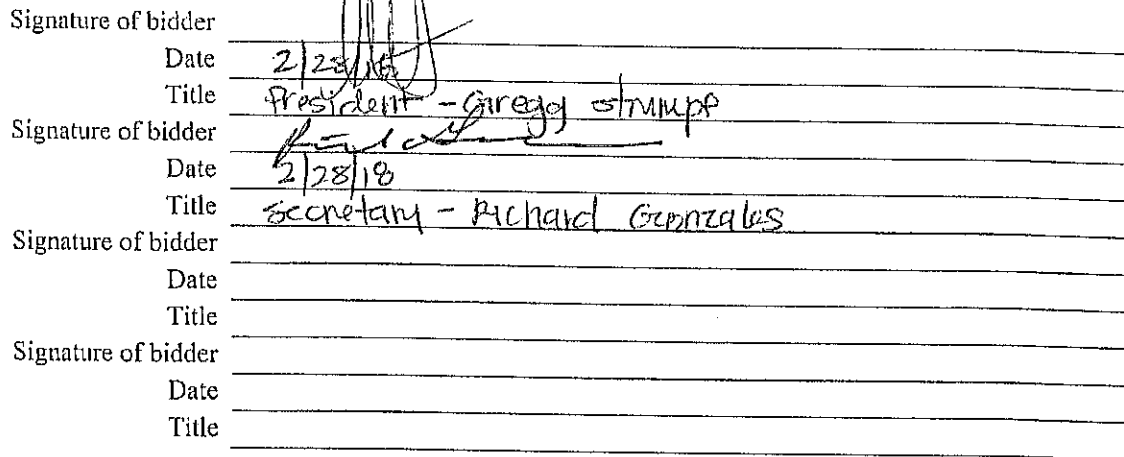 Signature of bidder
Date 2/28/18
Title President - Gregg Strumpf
Signature of bidder
Date 2/28/18
Title Secretary - Richard Gonzales
Signature of bidder
Date
Title
Signature of bidder
Date
Title